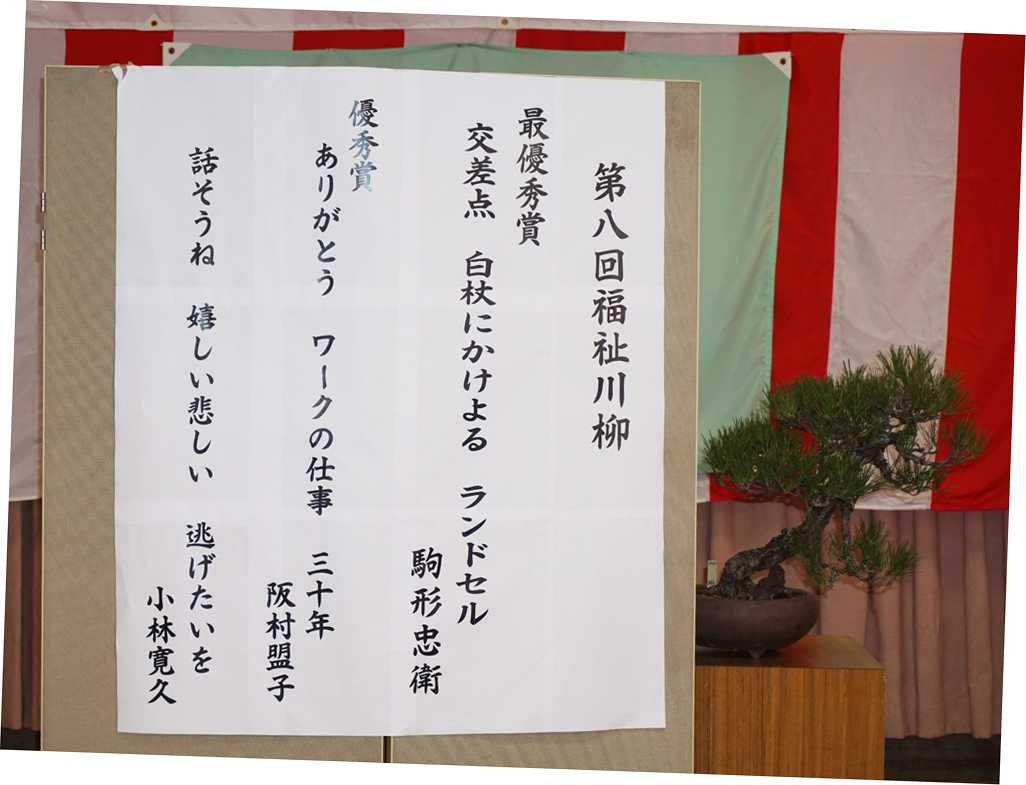 第八回福祉川柳
最優秀賞
交差点　白杖にかけよる　ランドセル
駒形忠衛
優秀賞
ありがとう　ワークの仕事　三十年
阪村盟子
話そうね　嬉しい悲しい　逃げたいを
小林寛久